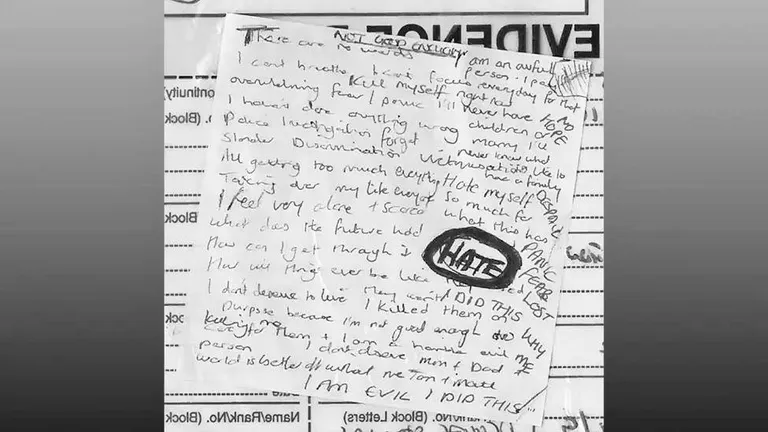 EVIDENCE
NOT GOOD ENOUGH
There are no words
I am an awful person I pay
I cant breathe I cant focus every day for that
Kill myself right now
overwhelming fear / panic I'll never have NO
HOPE
I haven't done anything wrong children or marry I'll
Police investigation forget never know what
Slander Discrimination Victimisation like to have a family
All getting too much everything Hate myself
DESPAIR
Taking over my life so much for what this has
I feel very alone + scared
PANIC
What does the future hold
HATE
FEAR
How can I get through it
LOST
How will things ever be like they
I DID THIS
I don't deserve to live I killed them on
purpose because I'm not good enough to
WHY
ME
care for them + I am a horrible evil
person I don't deserve mum + Dad
world is better off without me
I AM EVIL I DID THIS
ontinuity)
No. (Block
Name/Rank/No. (Block Letters)